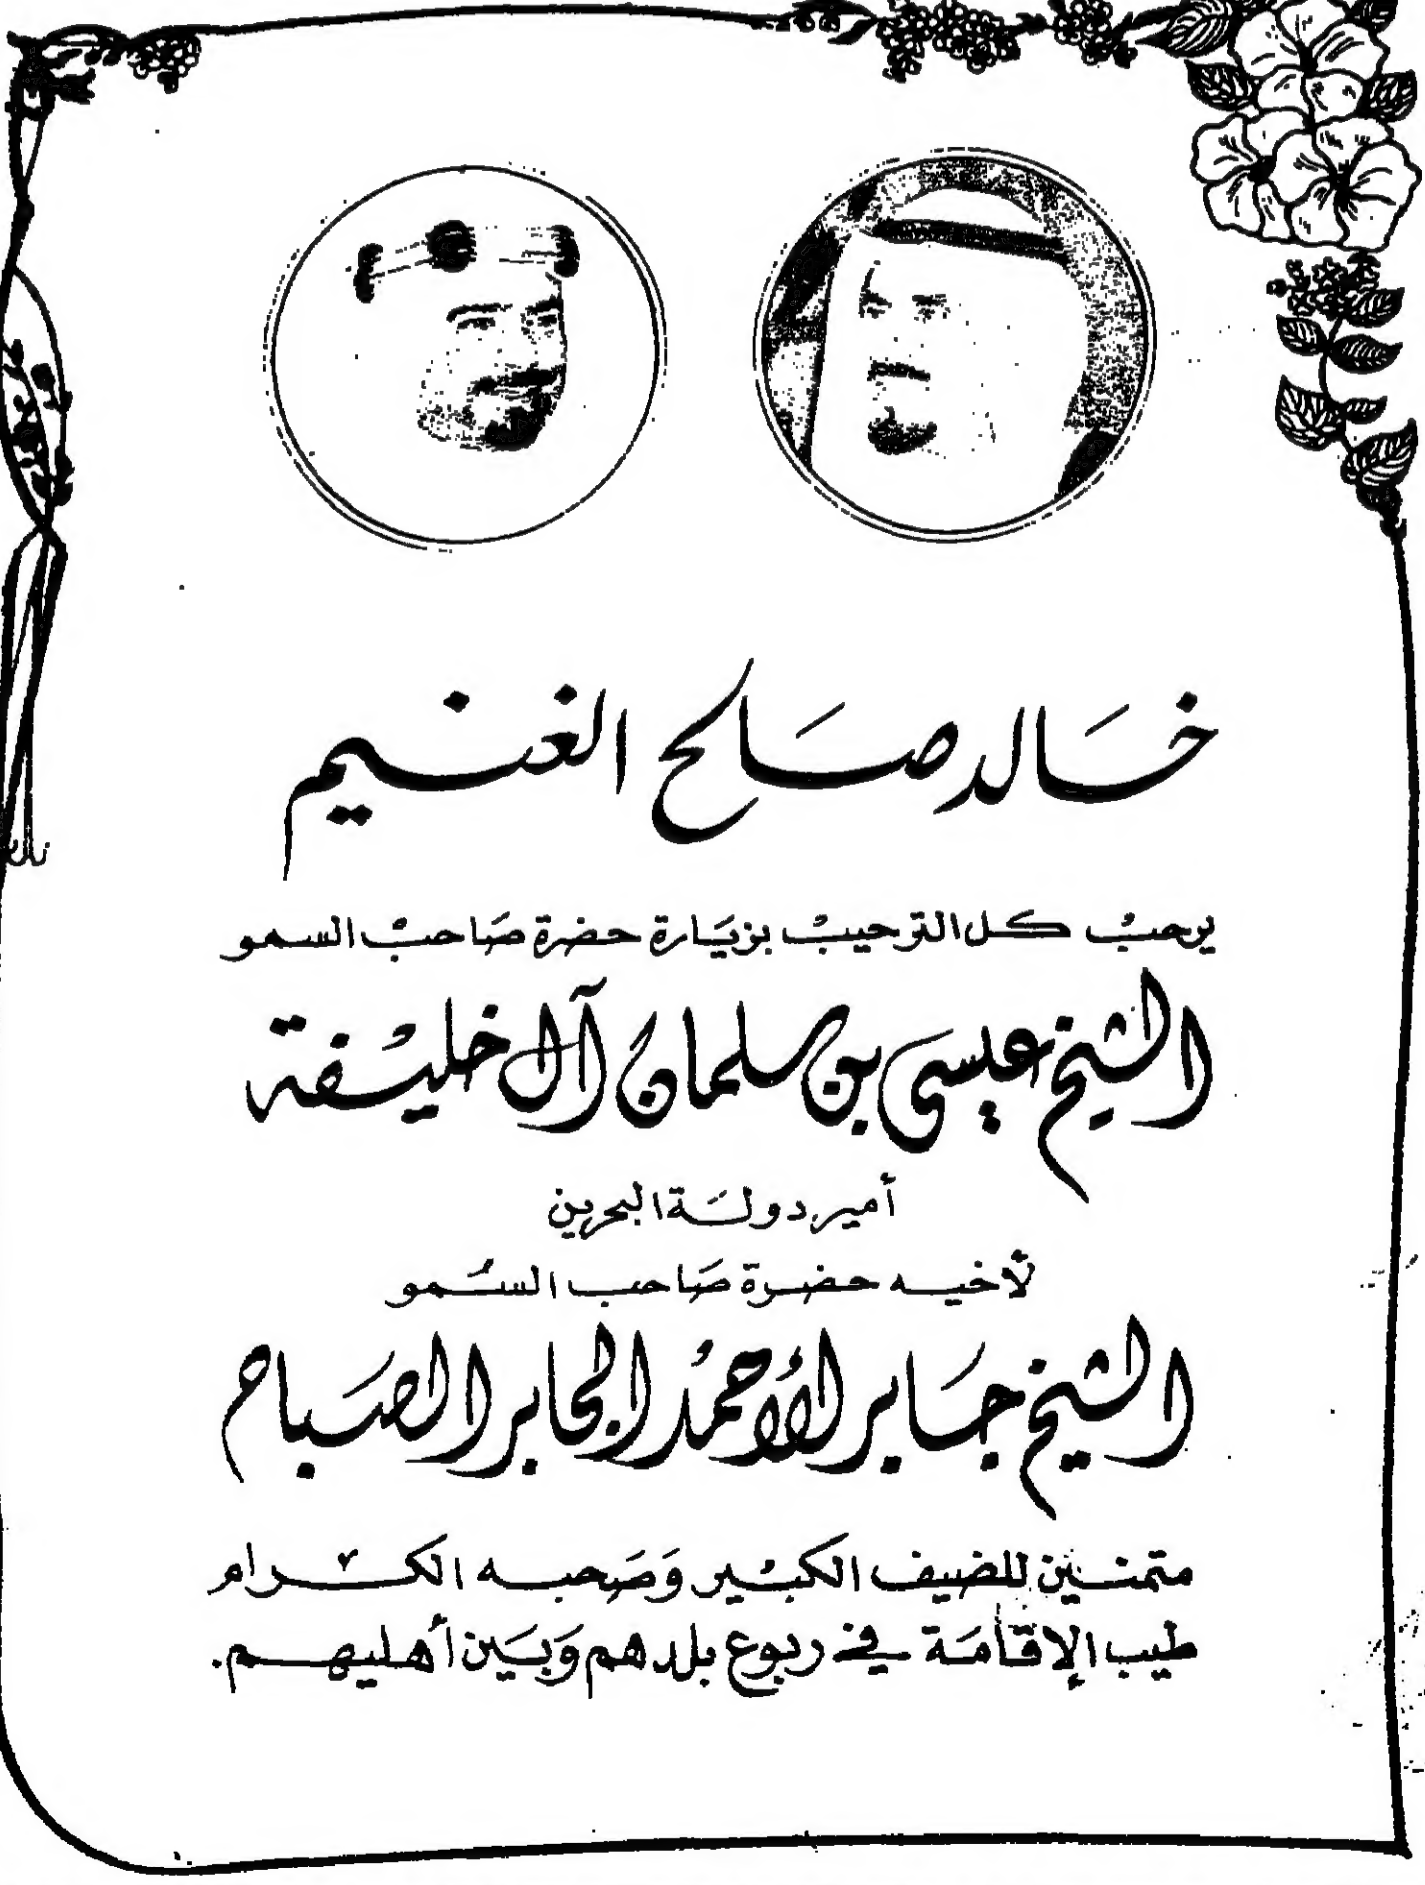 خالد صالح الغنيم
يرحب كل الترحيب بزيارة حضرة صاحب السمو
الشيخ عيسى بن سلمان آل خليفة
أمير دولة البحرين
لأخيه حضرة صاحب السمو
الشيخ جابر الأحمد الجابر الصباح
متمنين للضيف الكبير وصحبه الكرام
طيب الإقامة في ربوع بلدهم وبين أهليهم.